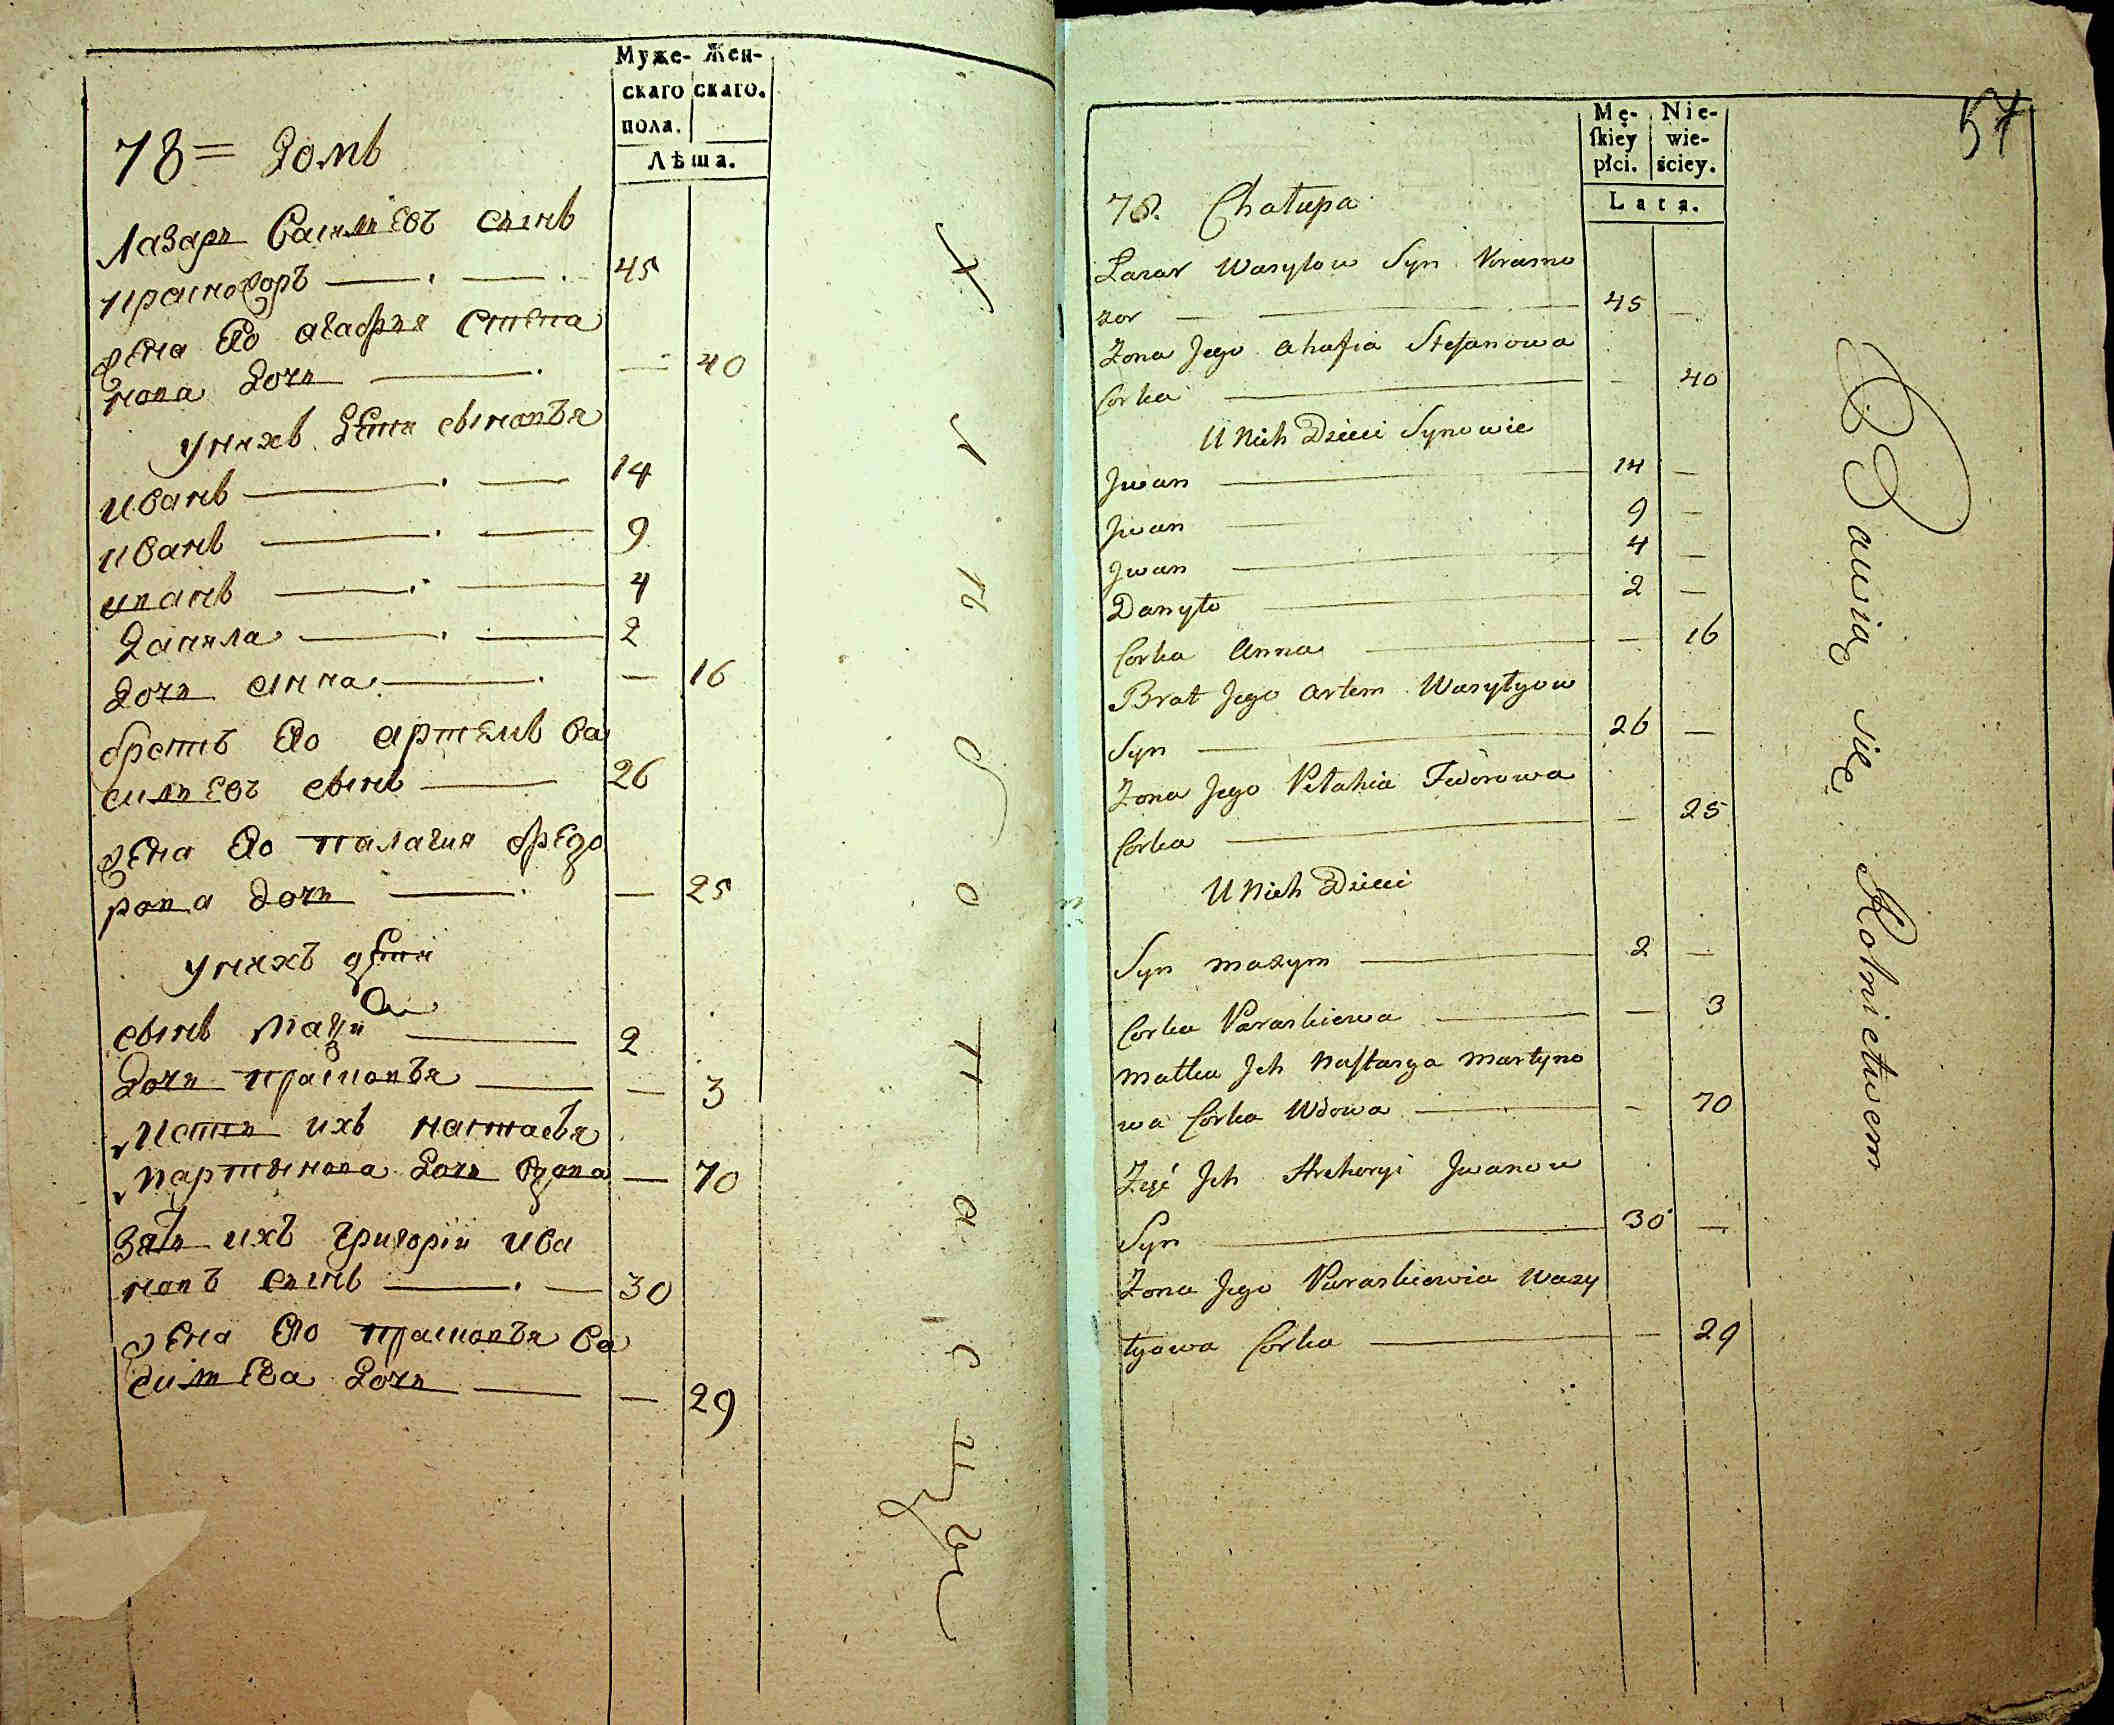 Муже- Жен-
скаго скаго.
пола.
Лѣта.
78 = домъ
Лазарь Васильевъ сынъ
красноворъ — 45
жена Его агафия степа
нова дочь — — 40
у нихъ дети сыновья
иванъ — 14
иванъ — 9
иванъ — 4
данила — 2
дочь анна — — 16
братъ Его артемъ ва
сильевъ сынъ — 26
жена Его палагия федо
рова дочь — — 25
у нихъ дети
сынъ мазимъ — 2
дочь прасковья — — 3
мать ихъ настасья
мартынова дочь вдова — 70
зять ихъ григорій ива
новъ сынъ — 30
жена Его прасковья ва
сильева дочь — — 29
хлѣбопашцы
57
Mę- Nie-
skiey wie-
płci. ściey.
Lata.
78. Chałupa
Łazar Wasylow Syn Krasno
zor — 45 —
Zona Jego Ahafia Stefanowa
Corka — — 40
U Nich Dzieci Synowie
Jwan — 14 —
Jwan — 9 —
Jwan — 4 —
Danyło — 2 —
Corka Anna — — 16
Brat Jego Artem Wasylyow
Syn — 26 —
Zona Jego Pełahia Fedorowa
Corka — — 25
U Nich Dzieci
Syn Mazym — 2 —
Corka Paraskiewa — — 3
Matka Jch Nastasya Martyno
wa Córka Wdowa — — 70
Zięć Jch Hrehoryi Jwanow
Syn — 30 —
Zona Jego Paraskiewia Wasy
lyowa Corka — — 29
Bawią się Rolnictwem